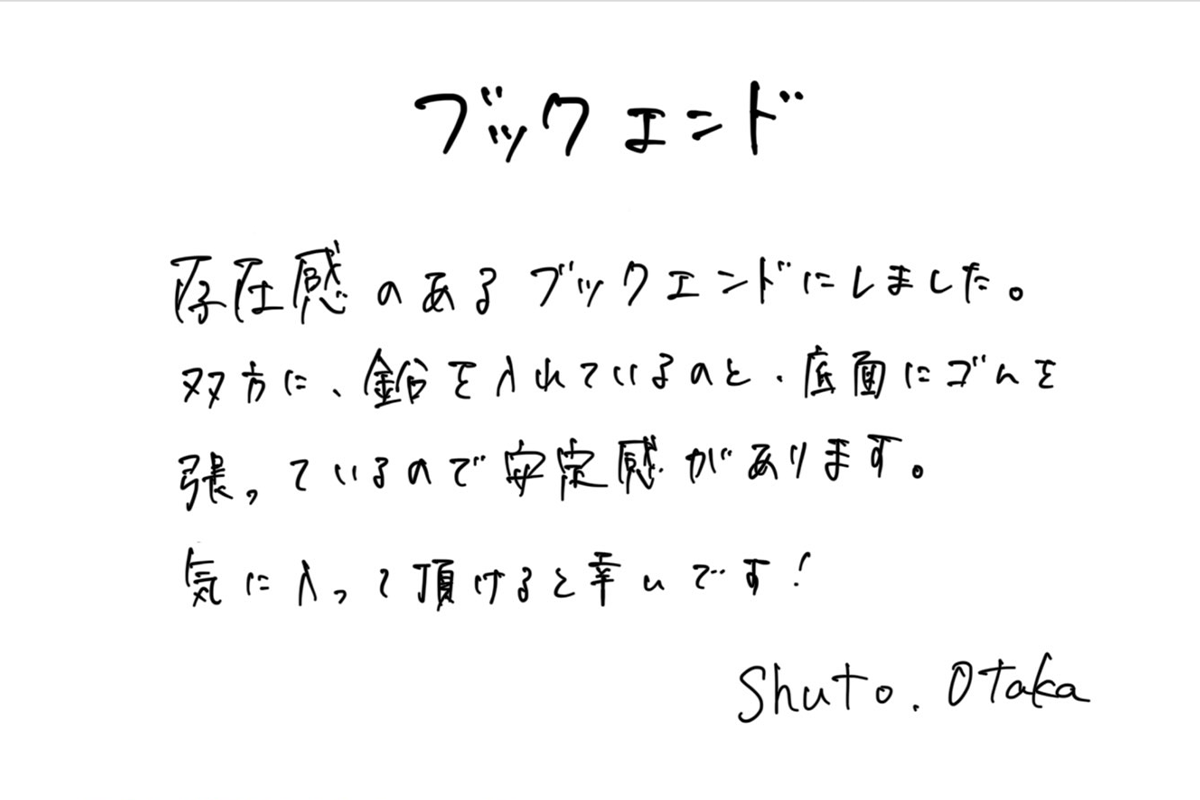 ブックエンド
存在感のあるブックエンドにしました。
双方に、鉛を入れているのと、底面にゴムを
張っているので安定感があります。
気に入って頂けると幸いです!
Shuto. Otaka